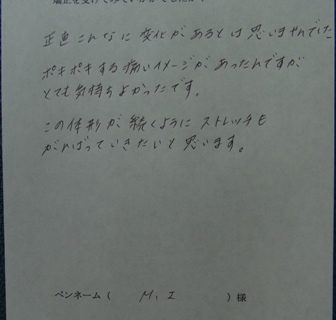 矯正を受けてみていかがでしたか?
正直こんなに変化があるとは思いませんでした
ポキポキする痛いイメージがあったんですが
とても気持ちよかったです。
この体形が続くようにストレッチも
がんばっていきたいと思います。
ペンネーム( M, I )様